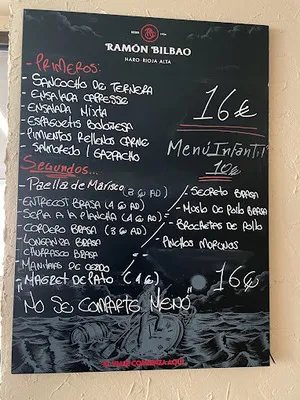 RAMÓN BILBAO
HARO·RIOJA ALTA
- PRIMEROS:
- SANCOCHO DE TERNERA
- ENSALADA CAPRESSE
- ENSALADA MIXTA
- ESPAGUETIS BOLOÑESA
- PIMIENTOS RELLENOS CARNE
- SALMOREJO / GAZPACHO
16€
Menú Infantil
10€
SEGUNDOS...
- PAELLA DE MARISCO (3€ AD)
- ENTRECOT BRASA (4€ AD)
- SEPIA A LA PLANCHA (4€ AD)
- CORDERO BRASA (3€ AD)
- LONGANIZA BRASA
- CHURRASCO BRASA
- MANITAS DE CERDO
- MAGRET DE PATO (4€)
- SECRETO BRASA
- MUSLO DE POLLO BRASA
- BROCHETAS DE POLLO
- PINCHOS MORUNOS
16€
"NO SE COMPARTE MENÚ"
EL VIAJE COMIENZA AQUÍ